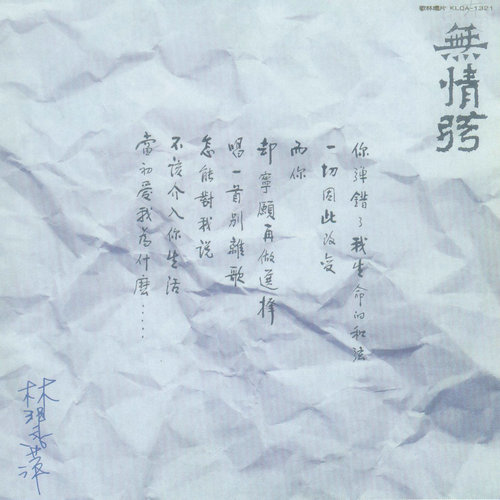 歌林唱片 KLCA-1321
無情弦
你彈錯了我生命的和弦
一切因此改變
而你
却寧願再做選擇
唱一首別離歌
怎能對我說
不該介入你生活
當初愛我為什麼……
林翠萍